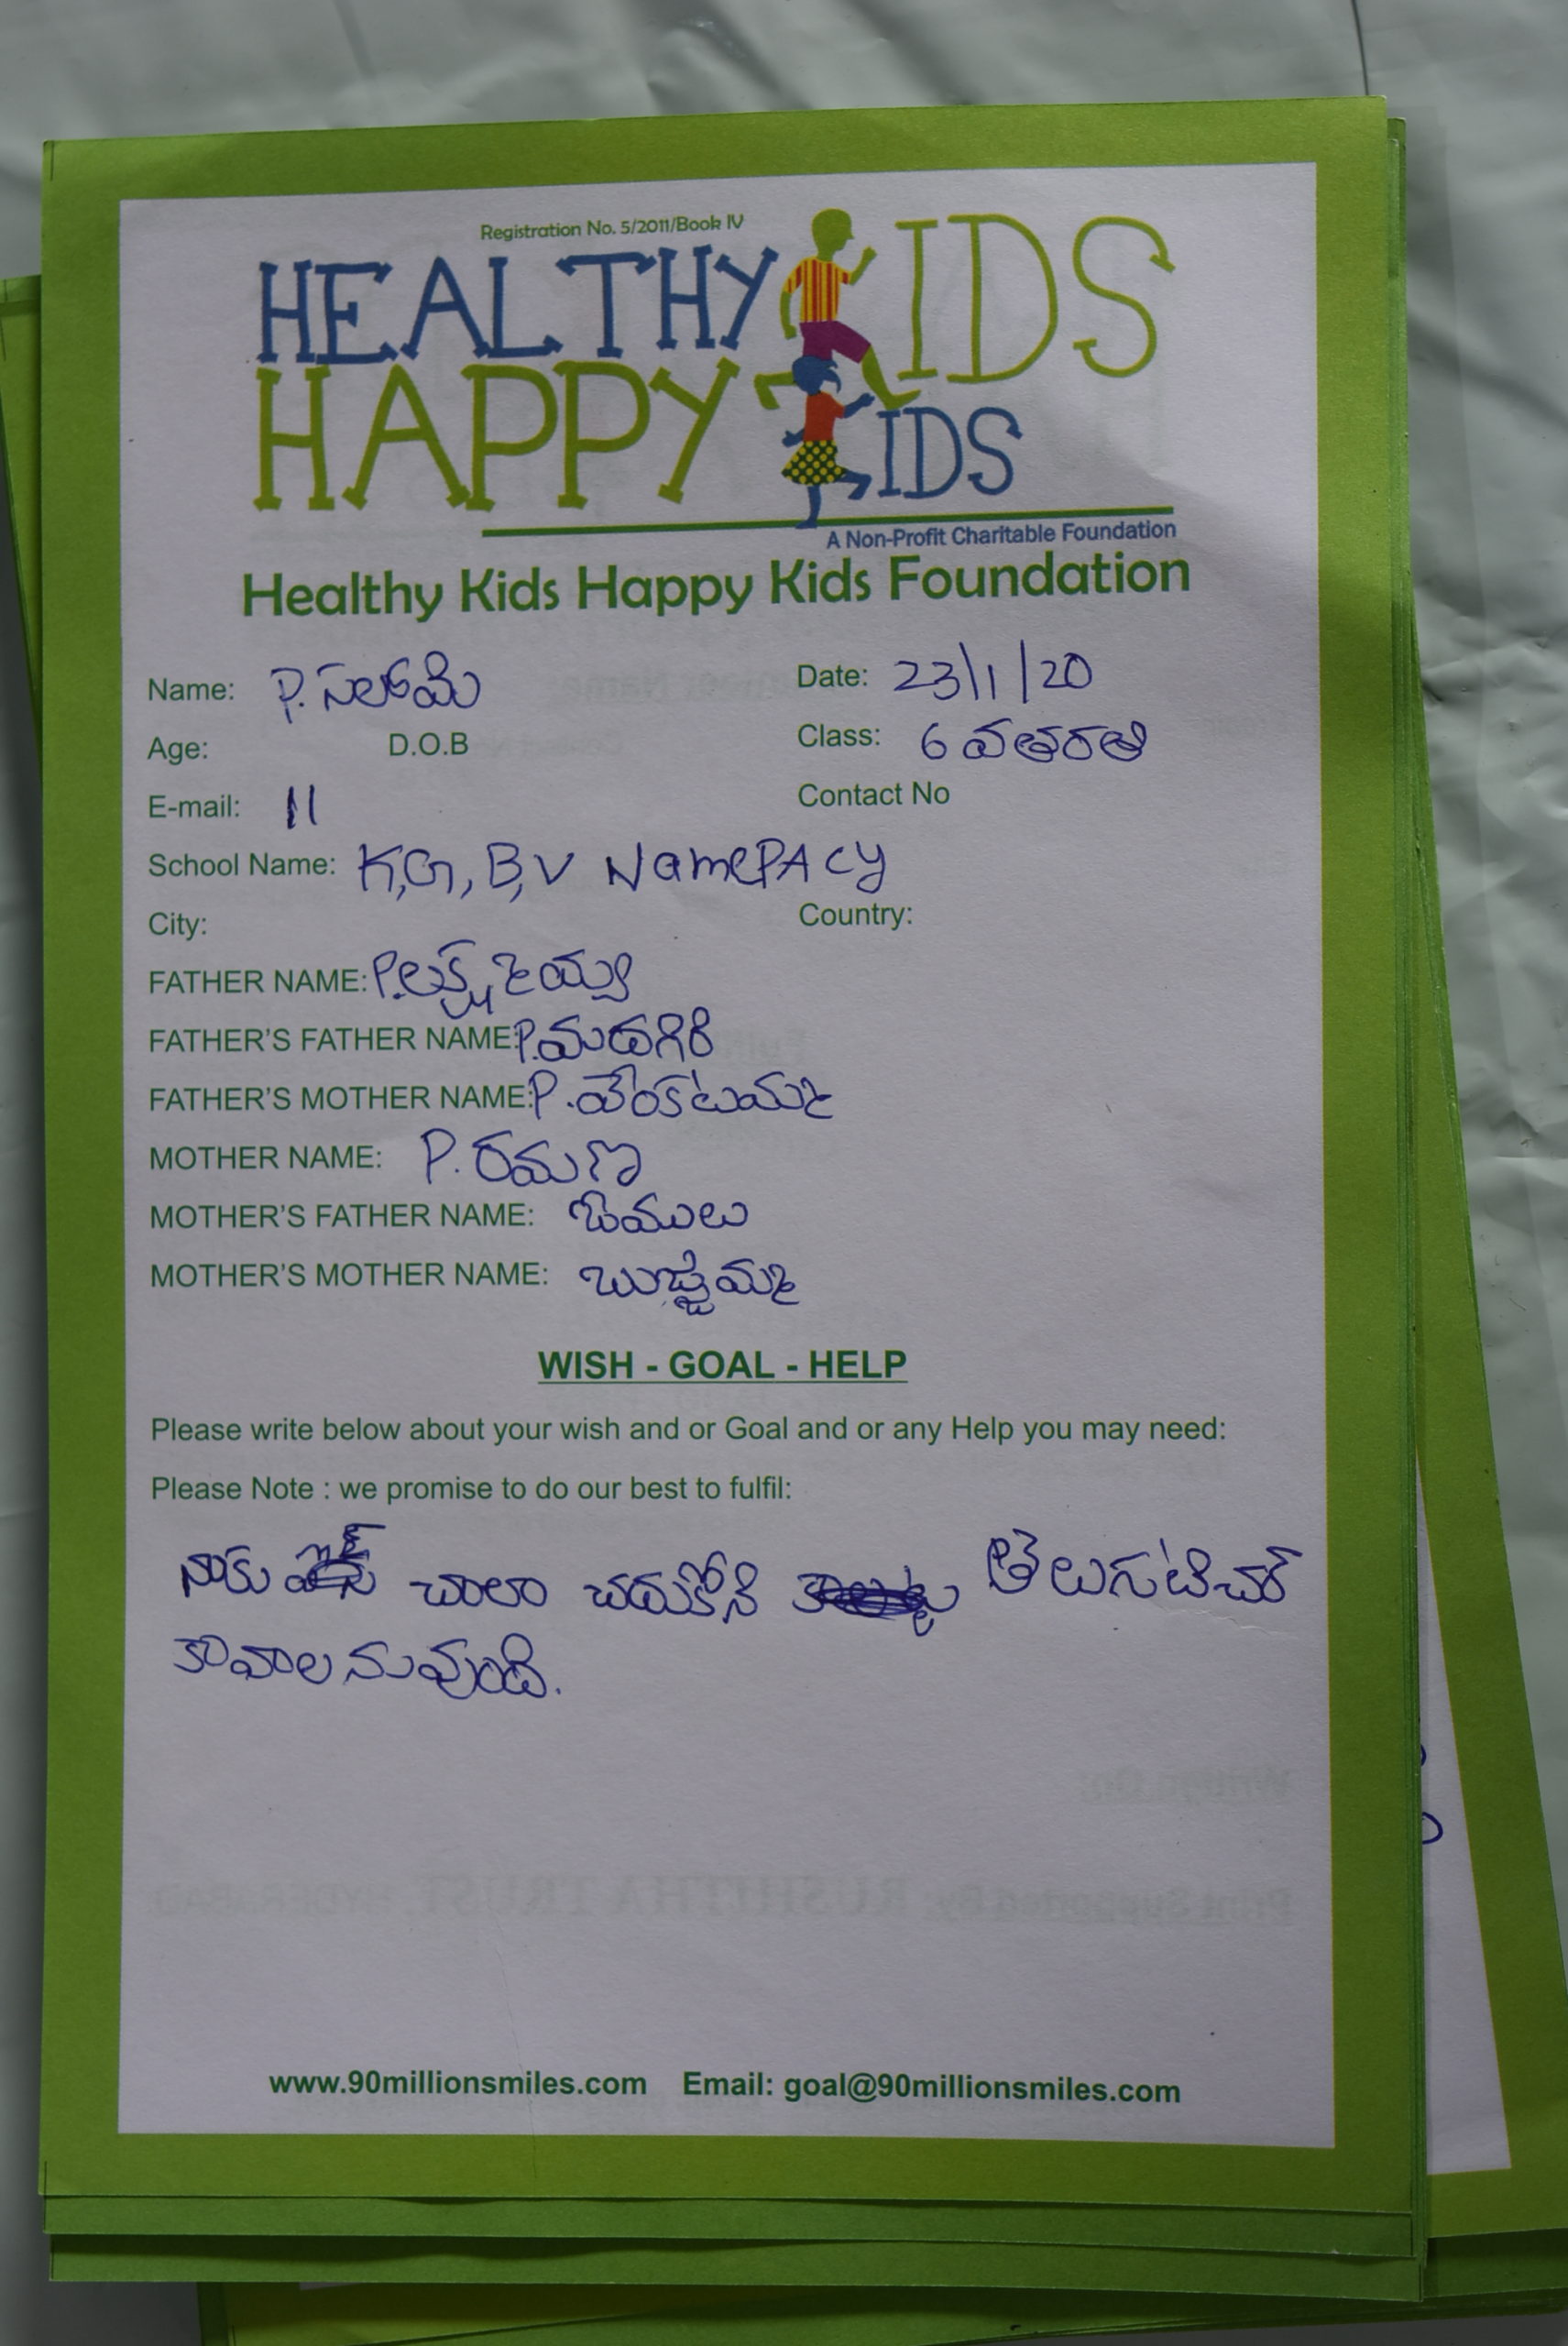 Registration No. 5/2011/Book IV
HEALTHY KIDS
HAPPY KIDS
A Non-Profit Charitable Foundation
Healthy Kids Happy Kids Foundation
Name: P. సలోమి Date: 23/1/20
Age: D.O.B Class: 6 వతరతి
E-mail: 11 Contact No
School Name: K,G, B,V NamePACy
City: Country:
FATHER NAME: P.లక్ష్మయ్య
FATHER'S FATHER NAME: P.మదగిరి
FATHER'S MOTHER NAME: P.వెంకటమ్మ
MOTHER NAME: P. రమణ
MOTHER'S FATHER NAME:
MOTHER'S MOTHER NAME: బుజ్జమ్మ
WISH - GOAL - HELP
Please write below about your wish and or Goal and or any Help you may need:
Please Note : we promise to do our best to fulfil:
నాకు చాలా చదుకోని తెలుగటిచర్
కావాలనువుంది.
www.90millionsmiles.com Email: goal@90millionsmiles.com